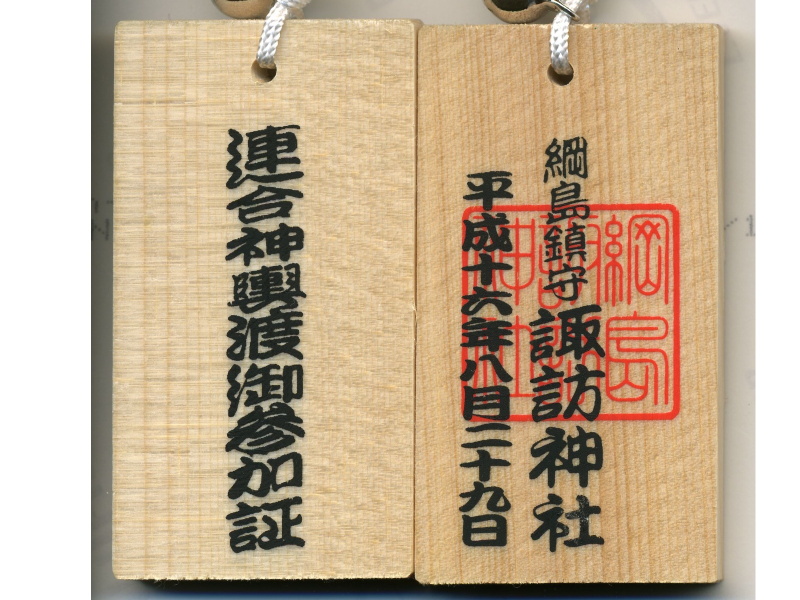 連合神輿渡御参加証
綱島鎮守 諏訪神社
平成十六年八月二十九日
綱島
諏訪
神社